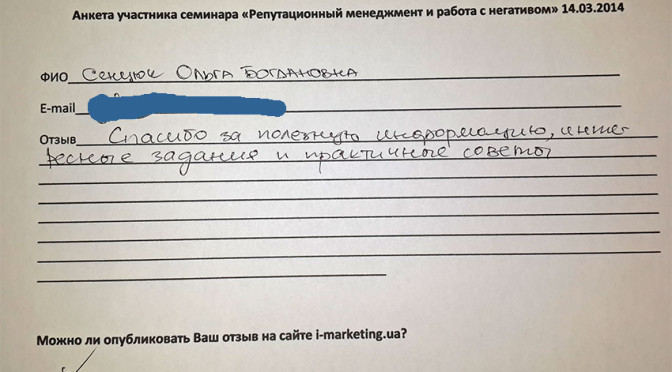 Анкета участника семинара «Репутационный менеджмент и работа с негативом» 14.03.2014
ФИО Сенцюк Ольга Богдановна
E-mail
Отзыв Спасибо за полезную информацию, инте-
ресные задания и практичные советы
Можно ли опубликовать Ваш отзыв на сайте i-marketing.ua?